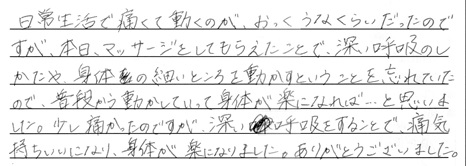 日常生活で痛くて動くのが、おっくうなくらいだったので
すが、本日、マッサージをしてもらえたことで、深い呼吸のし
かたや、身体の細いところを動かすということを、忘れていた
ので、普段から動かしていって身体が楽になれば…と思いま
した。少し痛かったのですが、深い呼吸をすることで、痛気
持ちいいになり、身体が楽になりました。ありがとうございました。